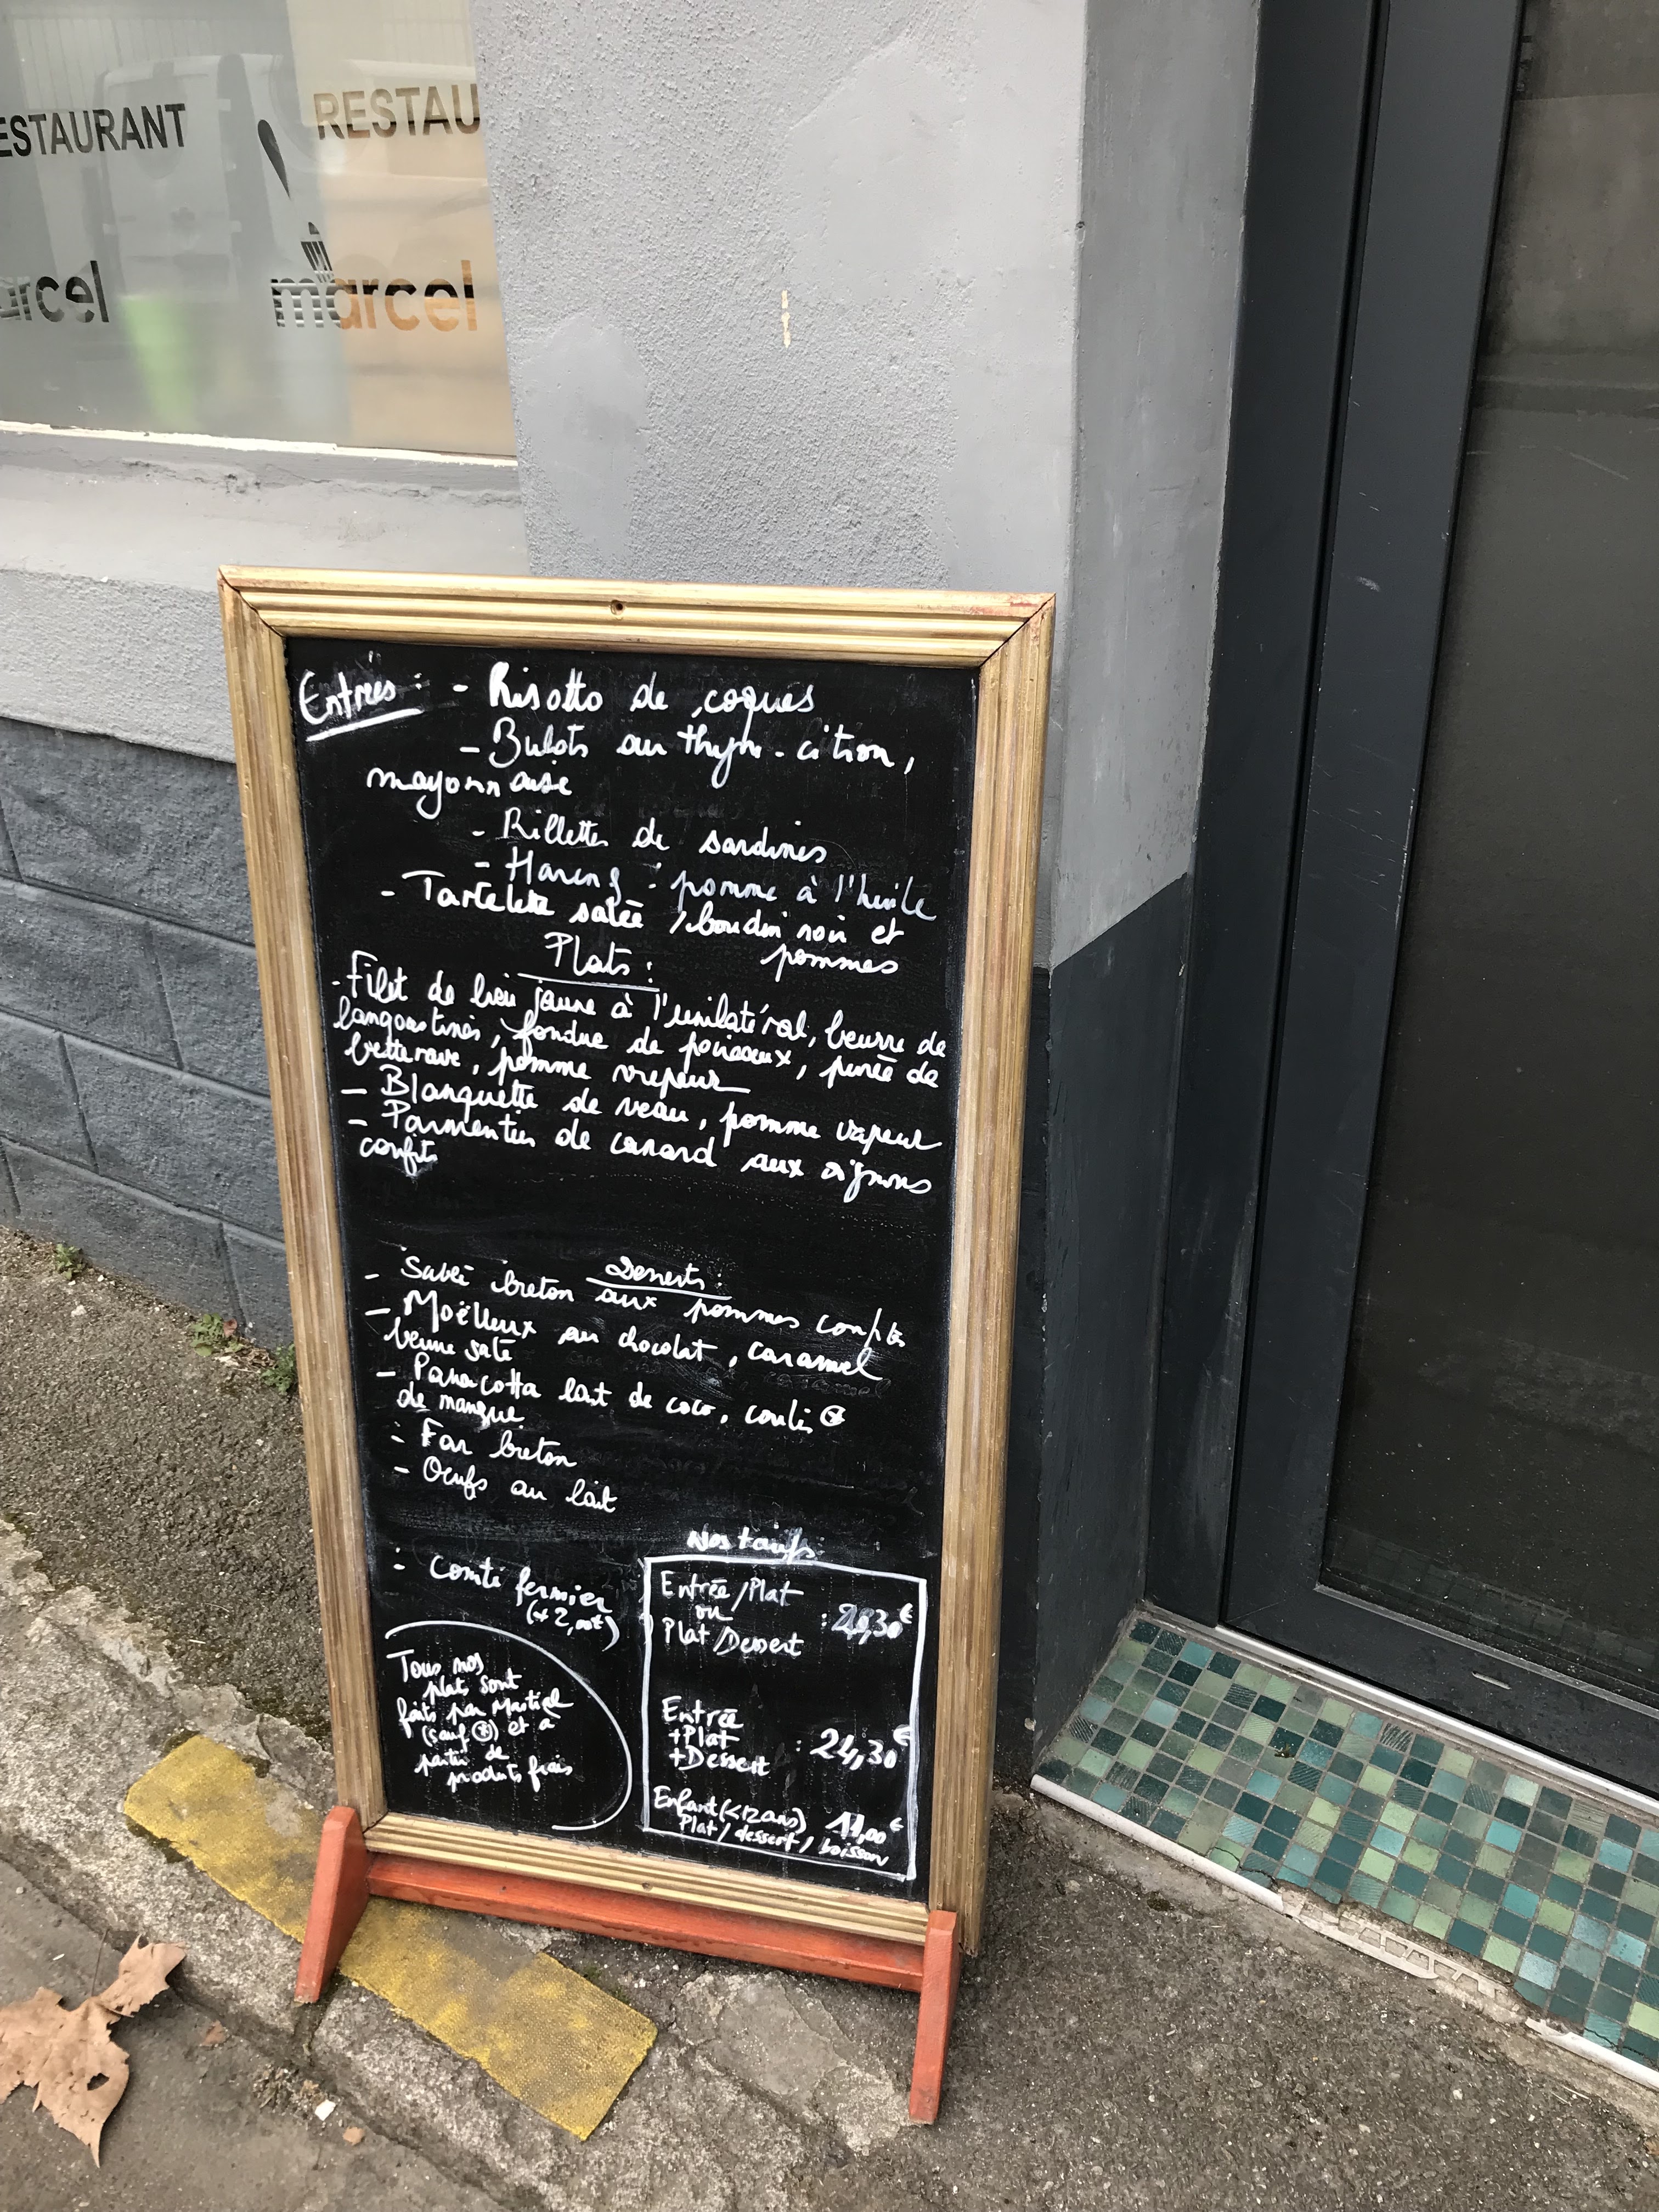 ESTAURANT
RESTAU
arcel
marcel
Entrées : - Risotto de coques
- Bulots au thym-citron,
mayonnaise
- Rillettes de sardines
- Hareng : pomme à l'huile
- Tartelette salée / boudin noir et
pommes
Plats :
- Filet de lieu jaune à l'unilatéral, beurre de
langoustines, fondue de poireaux, purée de
betterave, pomme vapeur
- Blanquette de veau, pomme vapeur
- Parmentier de canard aux oignons
confits
Desserts :
- Sablé breton aux pommes confites
- Moëlleux au chocolat, caramel
beurre salé
- Panacotta lait de coco, coulis
de mangue
- Far breton
- Oeufs au lait
- Comté fermier
(+2,00€)
Tous nos
plats sont
faits par Martial
(sauf *) et à
partir de
produits frais
Nos tarifs
Entrée/Plat
ou
Plat/Dessert
Entrée
+Plat
+Dessert : 24,30€
Enfant (<12 ans) 11,00€
Plat / dessert / boisson